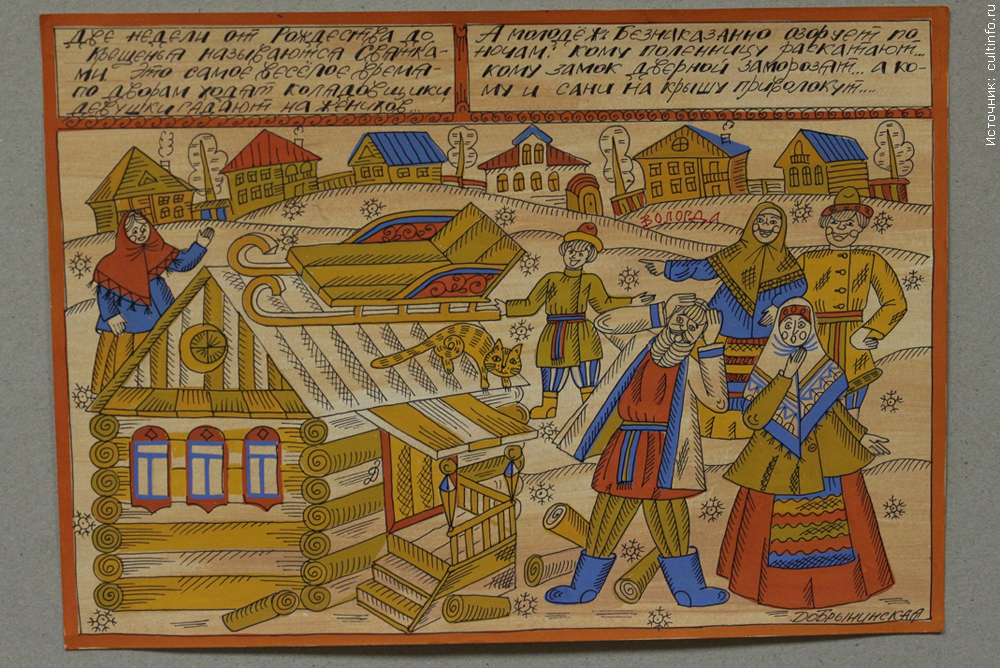 Две недели от Рождества до
Крещенья называются Святка-
ми. Это самое весёлое время-
по дворам ходят колядовщики,
девушки гадают на женихов...
А молодёжь безнаказанно озорует по
ночам: кому поленницу раскатают...
кому замок дверной заморозят... а ко-
му и сани на крышу приволокут....
ВОЛОГДА
ДОБРЫНИНСКАЯ
Источник: cultinfo.ru